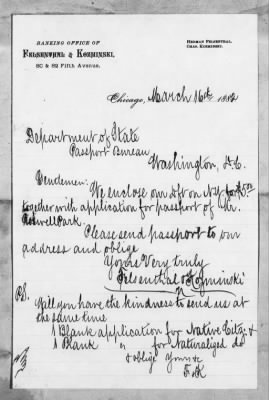 BANKING OFFICE OF
FELSENTHAL & KOZMINSKI,
80 & 82 Fifth Avenue.
HERMAN FELSENTHAL.
CHAS. KOZMINSKI.
Chicago, March 16th 1882
Department of State
Passport Bureau
Washington, D.C.
Gentlemen: We enclose our dft on NY for $5.00
together with application for passport of Mr.
Roswell Park.
Please send passport to our
address and oblige
Yours Very truly
Felsenthal & Kozminski
PS.
Will you have the kindness to send us at
the same time
1 Blank application for Native Citz: &
1 Blank " for Naturalized do
& oblige Yours &
F & K